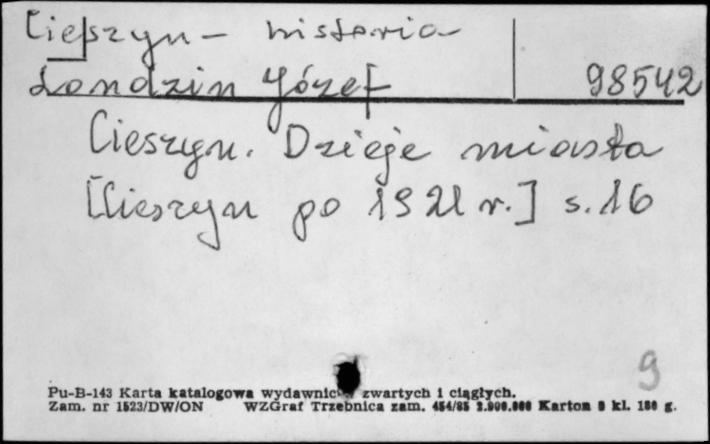 Cieszyn - historia
Londzin Józef 98542
Cieszyn. Dzieje miasta
[Cieszyn po 1921 r.] s. 16
9
Pu-B-143 Karta katalogowa wydawnictw zwartych i ciągłych.
Zam. nr 1523/DW/ON WZGraf Trzebnica zam. 454/85 2.000.000 Karton kl. g.